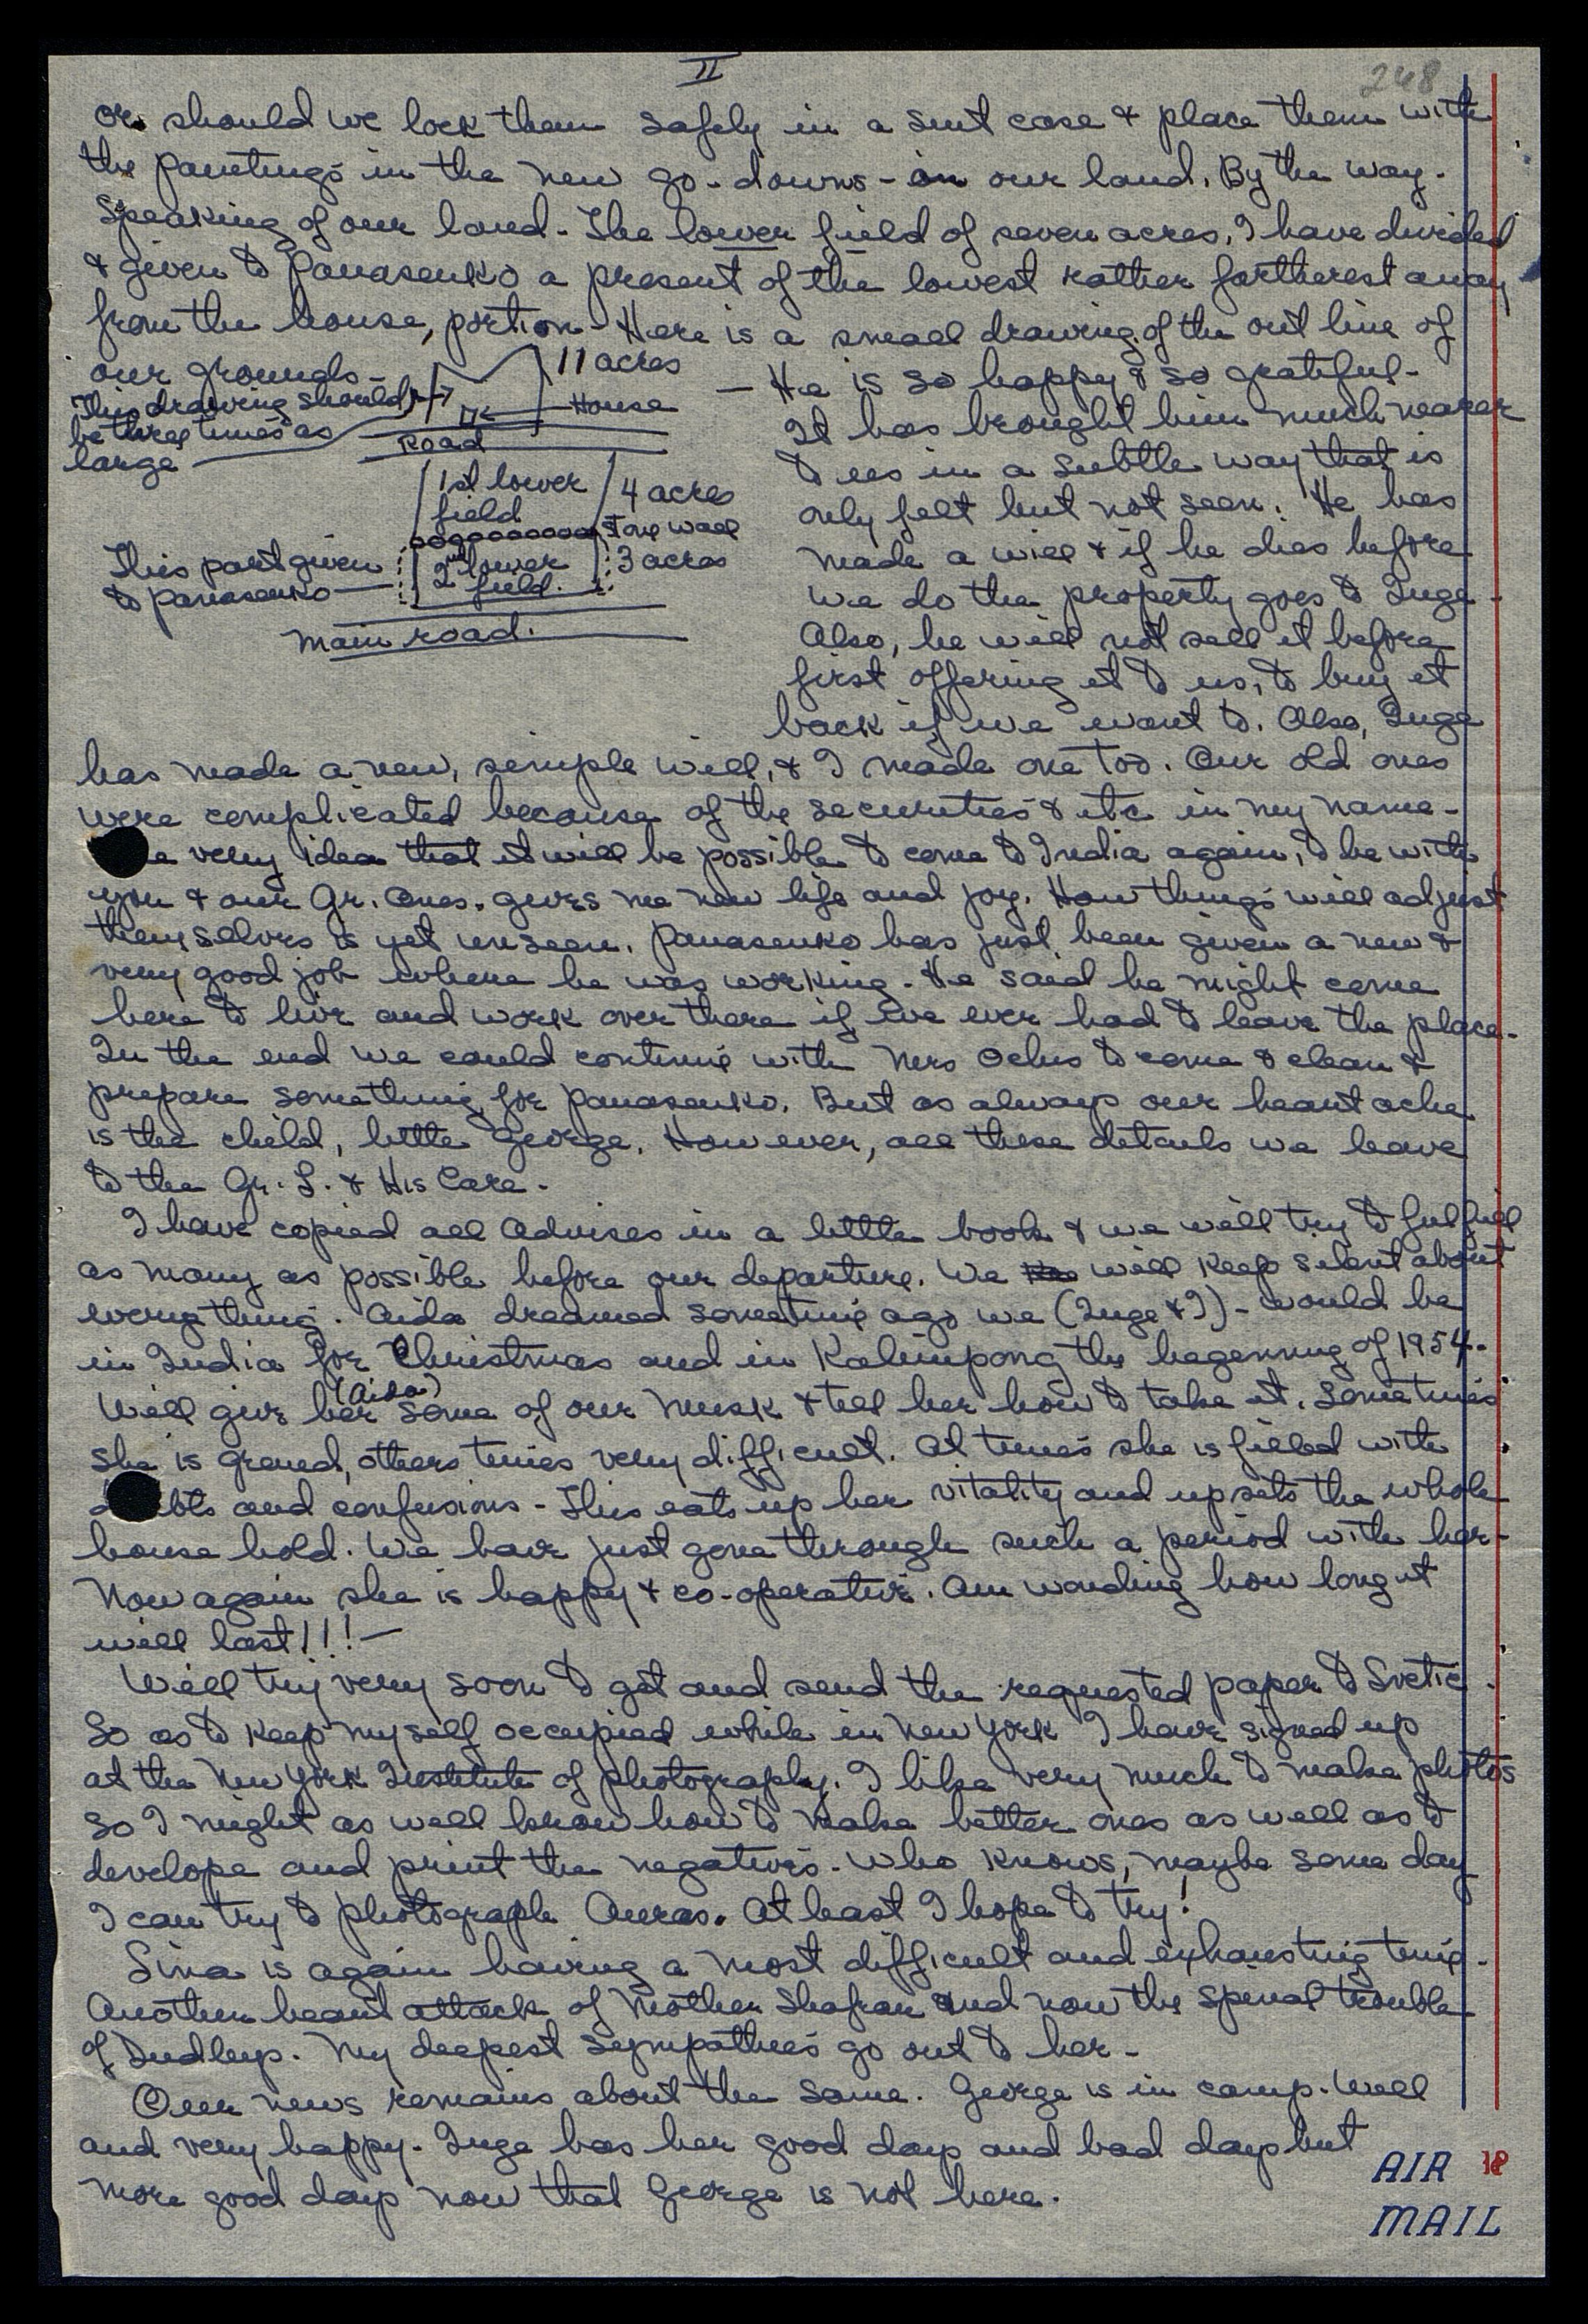 II
248
or should we lock them safely in a suit case & place them with
the paintings in the new go-downs - on our land. By the way.
Speaking of our land - The lower field of seven acres, I have divided
& given to Panasenko a present of the lowest rather fartherest away
from the house, portion - Here is a small drawing of the out line of
our grounds -
This drawing should
be three times as
large
11 acres
House
Road
1st lower
field
4 acres
Stone wall
2nd lower
field.
3 acres
This part given
to Panasenko
Main road.
- He is so happy & so grateful -
It has brought him much nearer
to us in a subtle way that is
only felt but not seen. He has
made a will & if he dies before
we do the property goes to Inge -
Also, he will not sell it before
first offering it to us, to buy it
back if we want to. Also, Inge
has made a new, simple will, & I made one too. Our old ones
were complicated because of the securities & etc in my name -
e very idea that it will be possible to come to India again, to be with
you & our Gr. Ones. gives me new life and joy. How things will adjust
themselves is yet unseen. Panasenko has just been given a new &
very good job where he was working. He said he might come
here to live and work over there if we ever had to leave the place.
In the end we could continue with Mrs Ochs to come & clean &
prepare something for Panasenko. But as always our heart ache
is the child, little George. However, all these details we leave
to the Gr. L. & His Care.
I have copied all Advises in a little book & we will try to fulfill
as many as possible before our departure. We will keep silent about
everything. Aida dreamed sometime ago we (Inge & I) - would be
in India for Christmas and in Kalimpong the begenning of 1954.
Will give her (Aida) some of our Musk & tell her how to take it. Sometimes
she is grand, others times very difficult. At times she is filled with
d bts and confusions - This eats up her vitality and upsets the whole
house hold. We have just gone through such a period with her -
Now again she is happy & co-operative. Am wonding how long it
will last!!! -
Will try very soon to get and send the requested paper to Svetic.
So as to keep myself occupied while in New York I have signed up
at the New York Institute of photography. I like very much to make photos
so I might as well know how to make better ones as well as to
develope and print the negatives. Who knows, maybe some day
I can try to photograph Auras. At least I hope to try!
Sina is again having a most difficult and exhausting time.
Another heart attack of Mother Shafran and now the spinal trouble
of Dudley. My deepest sympathies go out to her -
Our news remains about the same. George is in camp. Well
and very happy. Inge has her good days and bad days but
more good days now that George is not here.
AIR 18
MAIL